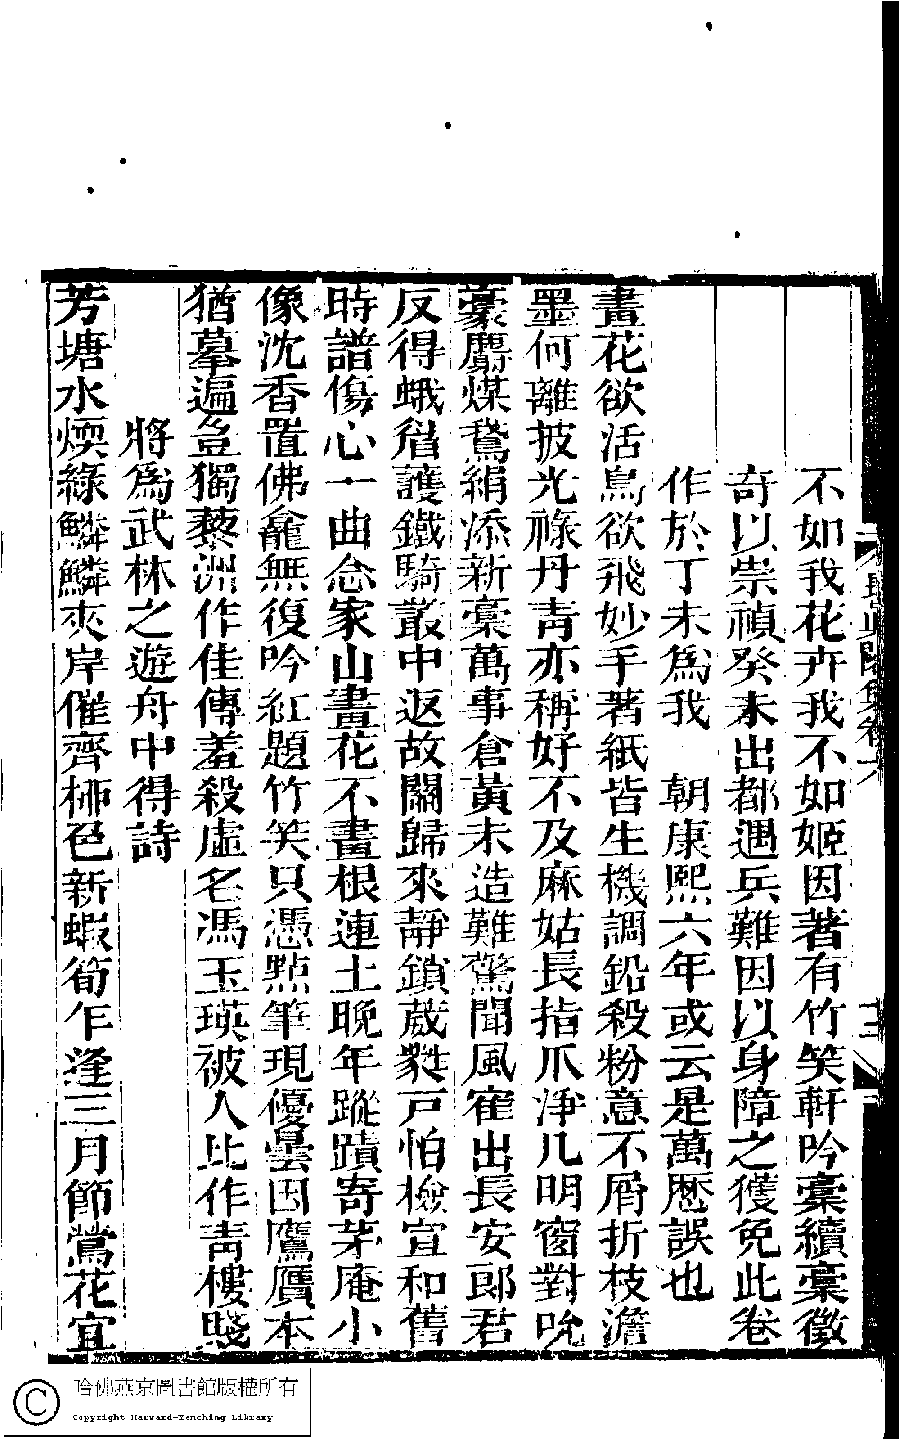 不如我花卉我不如姬因著有竹笑軒吟稾續稾徵
奇以崇禎癸未出都遇兵難因以身障之獲免此卷
作於丁未爲我　朝康熙六年或云是萬曆誤也
畫花欲活鳥欲飛妙手著紙皆生機調鉛殺粉意不屑折枝澹
墨何離披光祿丹青亦稱好不及麻姑長指爪淨几明窗對吮
豪麝煤鵞絹添新稾萬事倉黃未造難驚聞風隺出長安郎君
反得蛾眉護鐵騎叢中返故關歸來靜鎖葳蕤戸怕檢宣和舊
時譜傷心一曲念家山畫花不畫根連土晚年蹤蹟寄茅庵小
像沈香置佛龕無復吟紅題竹笑只憑點筆現優曇因鷹贗本
猶摹遍豈獨藜洲作佳傳羞殺虛名馮玉瑛被人比作青樓賤
將爲武林之遊舟中得詩
芳塘水煗綠鱗鱗夾岸催齊桺色新蝦筍乍逢三月節鶯花宜
十三
哈佛燕京圖書館版權所有
Copyright Harvard-Yenching Library